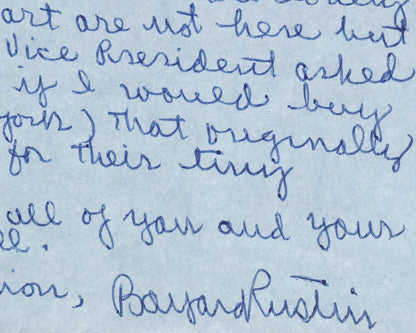 art are not here but
Vice President asked
if I would buy
York) that originally
for their tiny
all of you and your
ion, Bayard Rustin